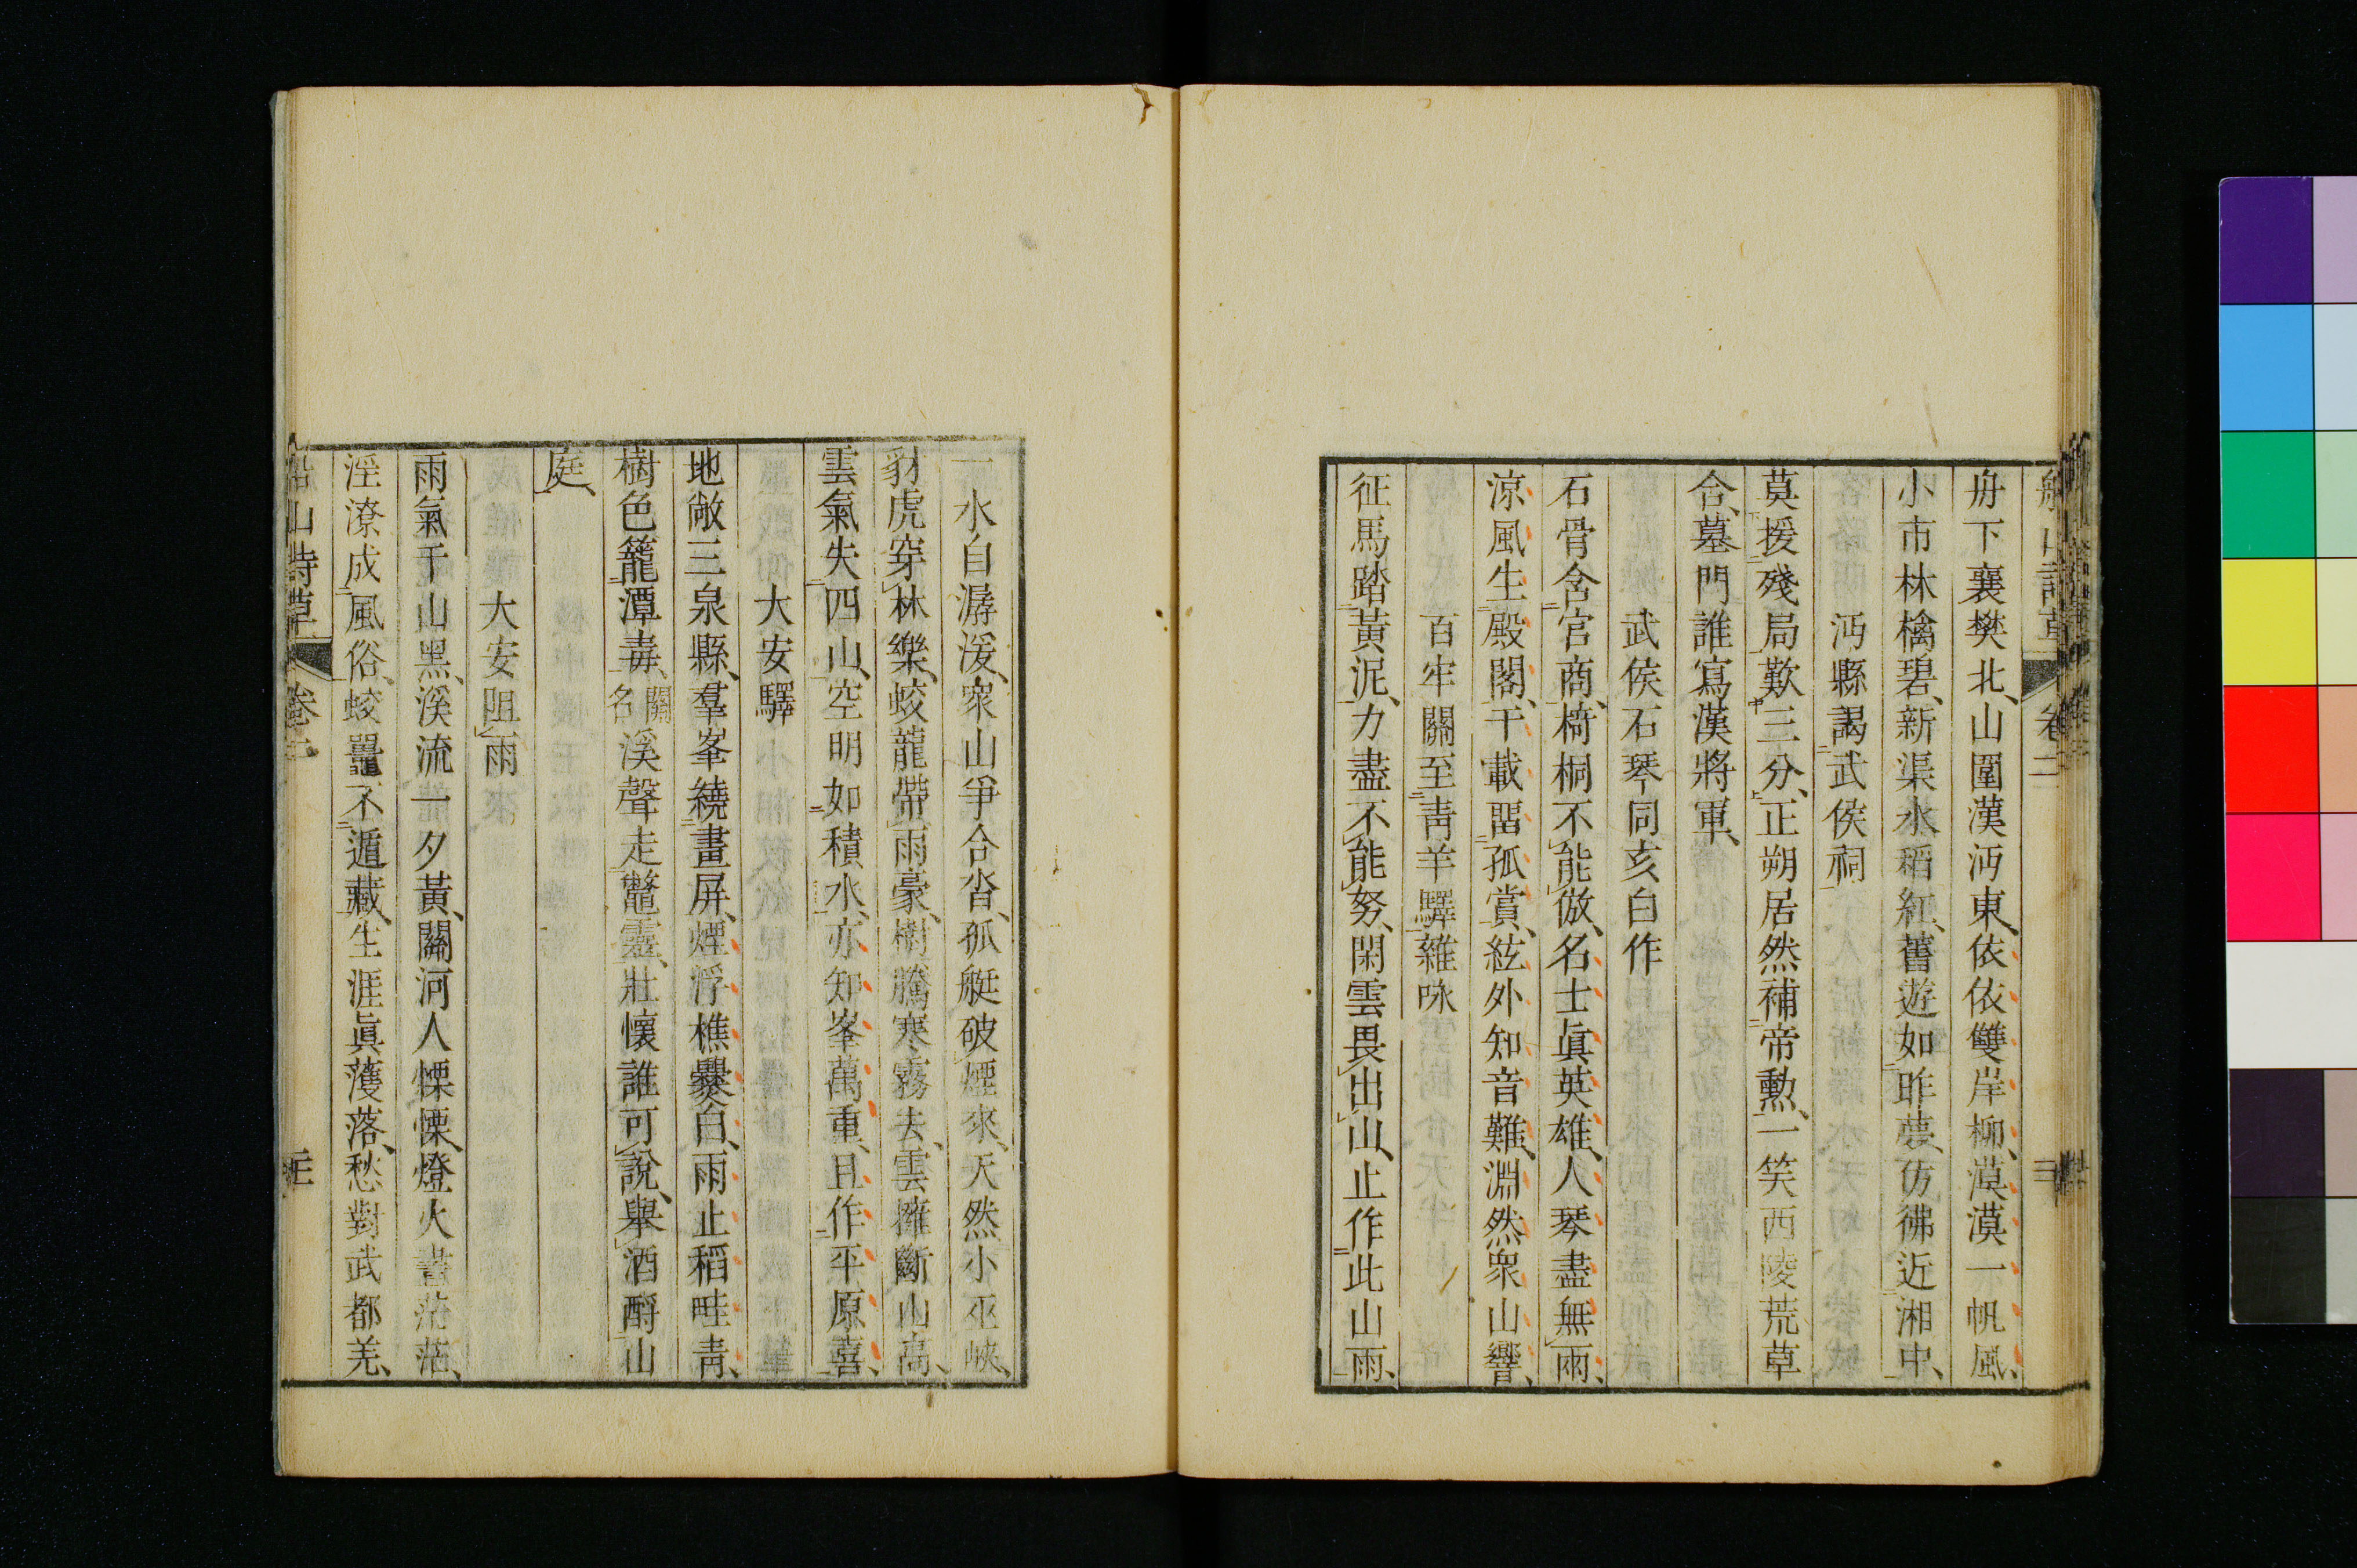 舟下襄樊北、山圍漢沔東、依依雙岸柳、漠漠一帆風、
小市林檎碧、新渠水稻紅、舊遊如昨夢、彷彿近湘中、
沔縣謁武侯祠
莫援殘局歎三分、正朔居然補帝勲、一笑西陵荒草
合、墓門誰寫漢將軍、
武侯石琴同亥白作
石骨含宮商、椅桐不能倣、名士眞英雄、人琴盡無兩、
涼風生殿閣、千載畱孤賞、絃外知音難、淵然衆山響、
百牢關至靑羊驛雜咏
征馬踏黃泥、力盡不能努、閑雲畏出山、止作此山雨、
一水自潺湲、衆山爭合沓、孤艇破煙來、天然小巫峽、
豺虎穿林樂、蛟龍帶雨豪、樹騰寒霧去、雲擁斷山高、
雲氣失四山、空明如積水、亦知峯萬重、且作平原喜、
大安驛
地敞三泉縣、羣峯繞畫屏、煙浮樵爨白、雨止稻畦靑、
樹色籠潭毒、關名溪聲走鼈靈、壯懷誰可說、舉酒酹山
庭、
大安阻雨
雨氣千山黑、溪流一夕黃、關河人慄慄、燈火晝茫茫、
淫潦成風俗、蛟鼉不遁藏、生涯眞濩落、愁對武都羌、
船山詩草 卷二